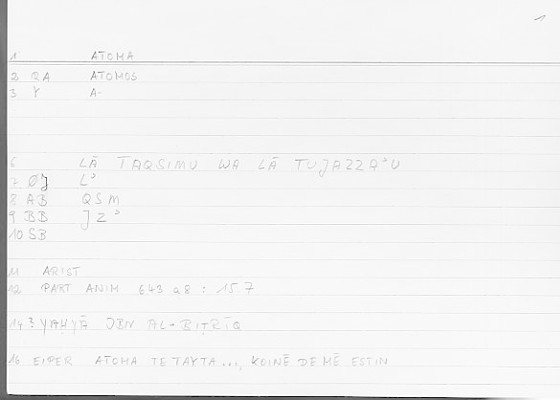 1
1 ATOMA
2 RA ATOMOS
3 Y A-
6 LĀ TAQSIMU WA LĀ TUJAZZAʾU
7 ØJ Lʾ
8 AB QSM
9 BB JZʾ
10 SB
11 ARIST
12 PART ANIM 643 a8 : 15.7
14 ? YAḤYĀ IBN AL-BIṬRĪQ
16 EIPER ATOMA TE TAKTA..., KOINĒ DE MĒ ESTIN